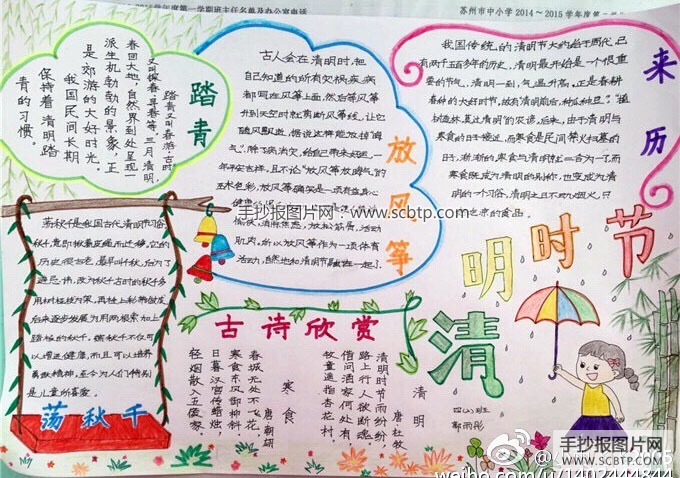 学年度第一学期班主任名单及办公室电话
苏州市中小学2014～2015学年度第
踏青
踏青又叫春游,古时
又叫探春、寻春等。三月清明,
春回大地,自然界到处呈现一
派生机勃勃的景象,正
是郊游的大好时光。
我国民间长期
保持着清明踏
青的习惯。
放风筝
古人会在清明时,把
自己知道的所有
都写在风筝上面,然后等风筝
升到天空时就剪断风筝线,让它
随风飘逝,据说这样能放掉"晦
气",除了病消灾,给自己带来好运,一
活动
肌肉,所以放风筝作为一项体育
活动,自然也和清明节
来历
我国传统的清明节大约始于周代,已
有两千五百多年的历史,清明最开始是一个很重
要的节气,清明一到,气温升高,正是春耕
春种的大好时节,故有"清明前后,种瓜种豆"。"植
树造林,莫过清明"的农谚。后来,由于清明与
寒食的日子接近,而寒食是民间禁火扫墓的
日子,渐渐的,寒食与清明就合二为一了,而
寒食既成为清明的别称,也变成为清
明的一个习俗,清明之日不动烟火,只
吃凉的食品。
荡秋千
荡秋千是我国古代清明节习俗,
秋千意即揪着皮绳而迁移。它的
历史很古老,最早叫千秋,后为了
避忌讳,改为秋千。古时的秋千多
用树桠枝为架,再栓上彩带做成。
后来逐步发展为用两根绳索加上
踏板的秋千。荡秋千不仅可
以增进健康,而且可以培养
勇敢精神,至今为人们特别
是儿童所喜爱。
古诗欣赏
清明
唐 杜牧
清明时节雨纷纷,
路上行人欲断魂。
借问酒家何处有,
牧童遥指杏花村。
寒食
唐 韩翃
春城无处不飞花,
寒食东风御柳斜。
日暮汉宫传蜡烛,
轻烟散入五侯家。
清明时节
手抄报图片网:www.scbtp.com
手抄报图片网
WWW.SCBTP.COM